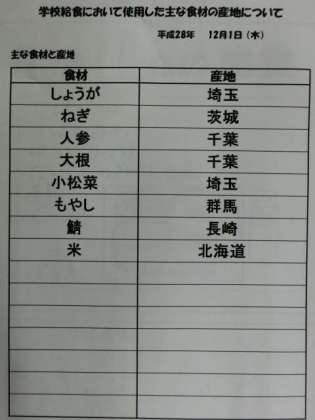 学校給食において使用した主な食材の産地について
平成28年 12月1日（木）
主な食材と産地
食材 産地
しょうが 埼玉
ねぎ 茨城
人参 千葉
大根 千葉
小松菜 埼玉
もやし 群馬
鯖 長崎
米 北海道